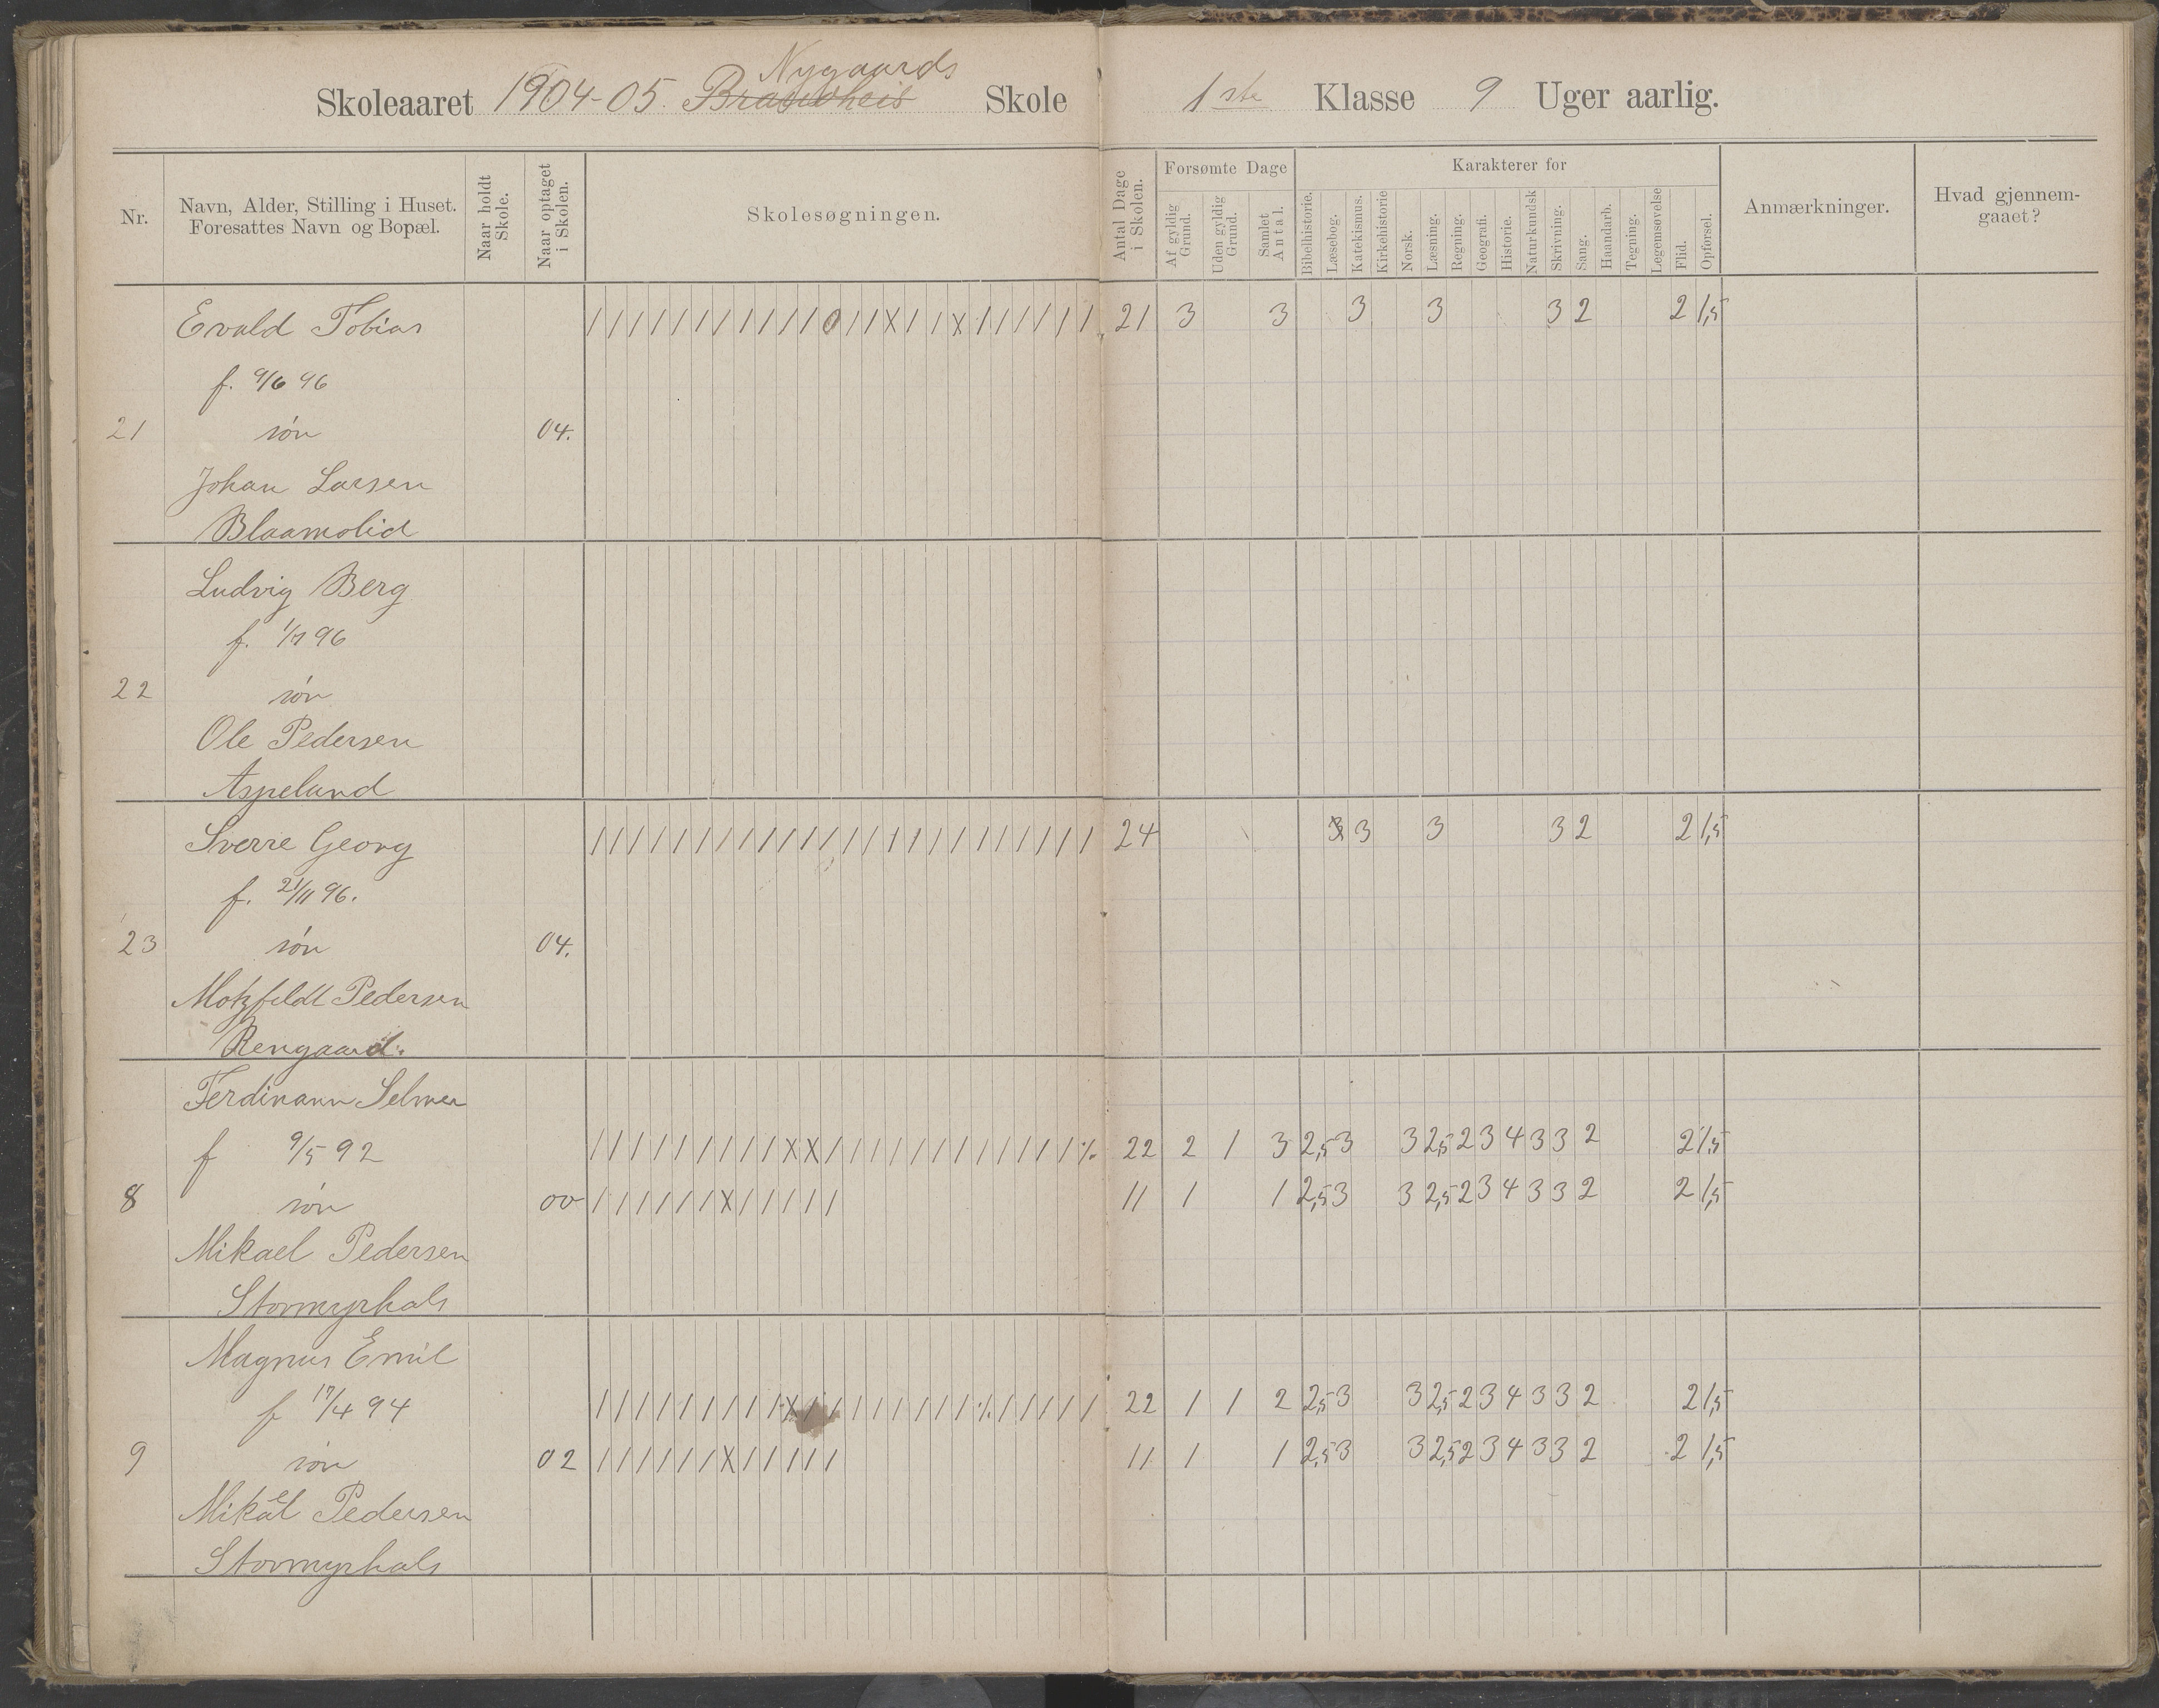 Nygaards
Skoleaaret 1904-05. Skole 1ste Klasse 9 Uger aarlig.
Nr.
Navn, Alder, Stilling i Huset. Foresattes Navn og Bopæl.
Naar holdt Skole.
Naar optaget i Skolen.
Skolesøgningen.
Antal Dage i Skolen.
Forsømte Dage
Af gyldig Grund.
Uden gyldig Grund.
Samlet Antal.
Karakterer for
Bibelhistorie.
Læsebog.
Katekismus.
Kirkehistorie
Norsk.
Læsning.
Regning.
Geografi.
Historie.
Naturkundsk
Skrivning.
Sang.
Haandarb.
Tegning.
Legemsøvelse
Flid.
Opførsel.
Anmærkninger.
Hvad gjennemgaaet?
Evald Tobias / / / / / / / / / / / 0 / / x / / x / / / / / / 21 3 3 3 3 3 2 2 1,5
f. 9/6 96
21 søn 04.
Johan Larsen
Blaamolid
Ludvig Berg
f. 1/7 96
22 søn
Ole Pedersen
Aspelund
Sverre Georg / / / / / / / / / / / / / / / / / / / / / / / / 24 3 3 3 2 2 1,5
f. 21/11 96.
23 søn 04.
Motzfeldt Pedersen
Rengaard.
Ferdinann Selmer
f 9/5 92 / / / / / / / / / x x / / / / / / / / / / / / % 22 2 1 3 2,5 3 3 2,5 2 3 4 3 3 2 2 1,5
8 søn 00 / / / / / / x / / / / / 11 1 1 2,5 3 3 2,5 2 3 4 3 3 2 2 1,5
Mikael Pedersen
Stormyrhals
Magnus Emil
f 17/4 94 / / / / / / / / / x / / / / / / / / % / / / / / 22 1 1 2 2,5 3 3 2,5 2 3 4 3 3 2 2 1,5
9 søn 02 / / / / / / x / / / / / 11 1 1 2,5 3 3 2,5 2 3 4 3 3 2 2 1,5
Mikael Pedersen
Stormyrhals